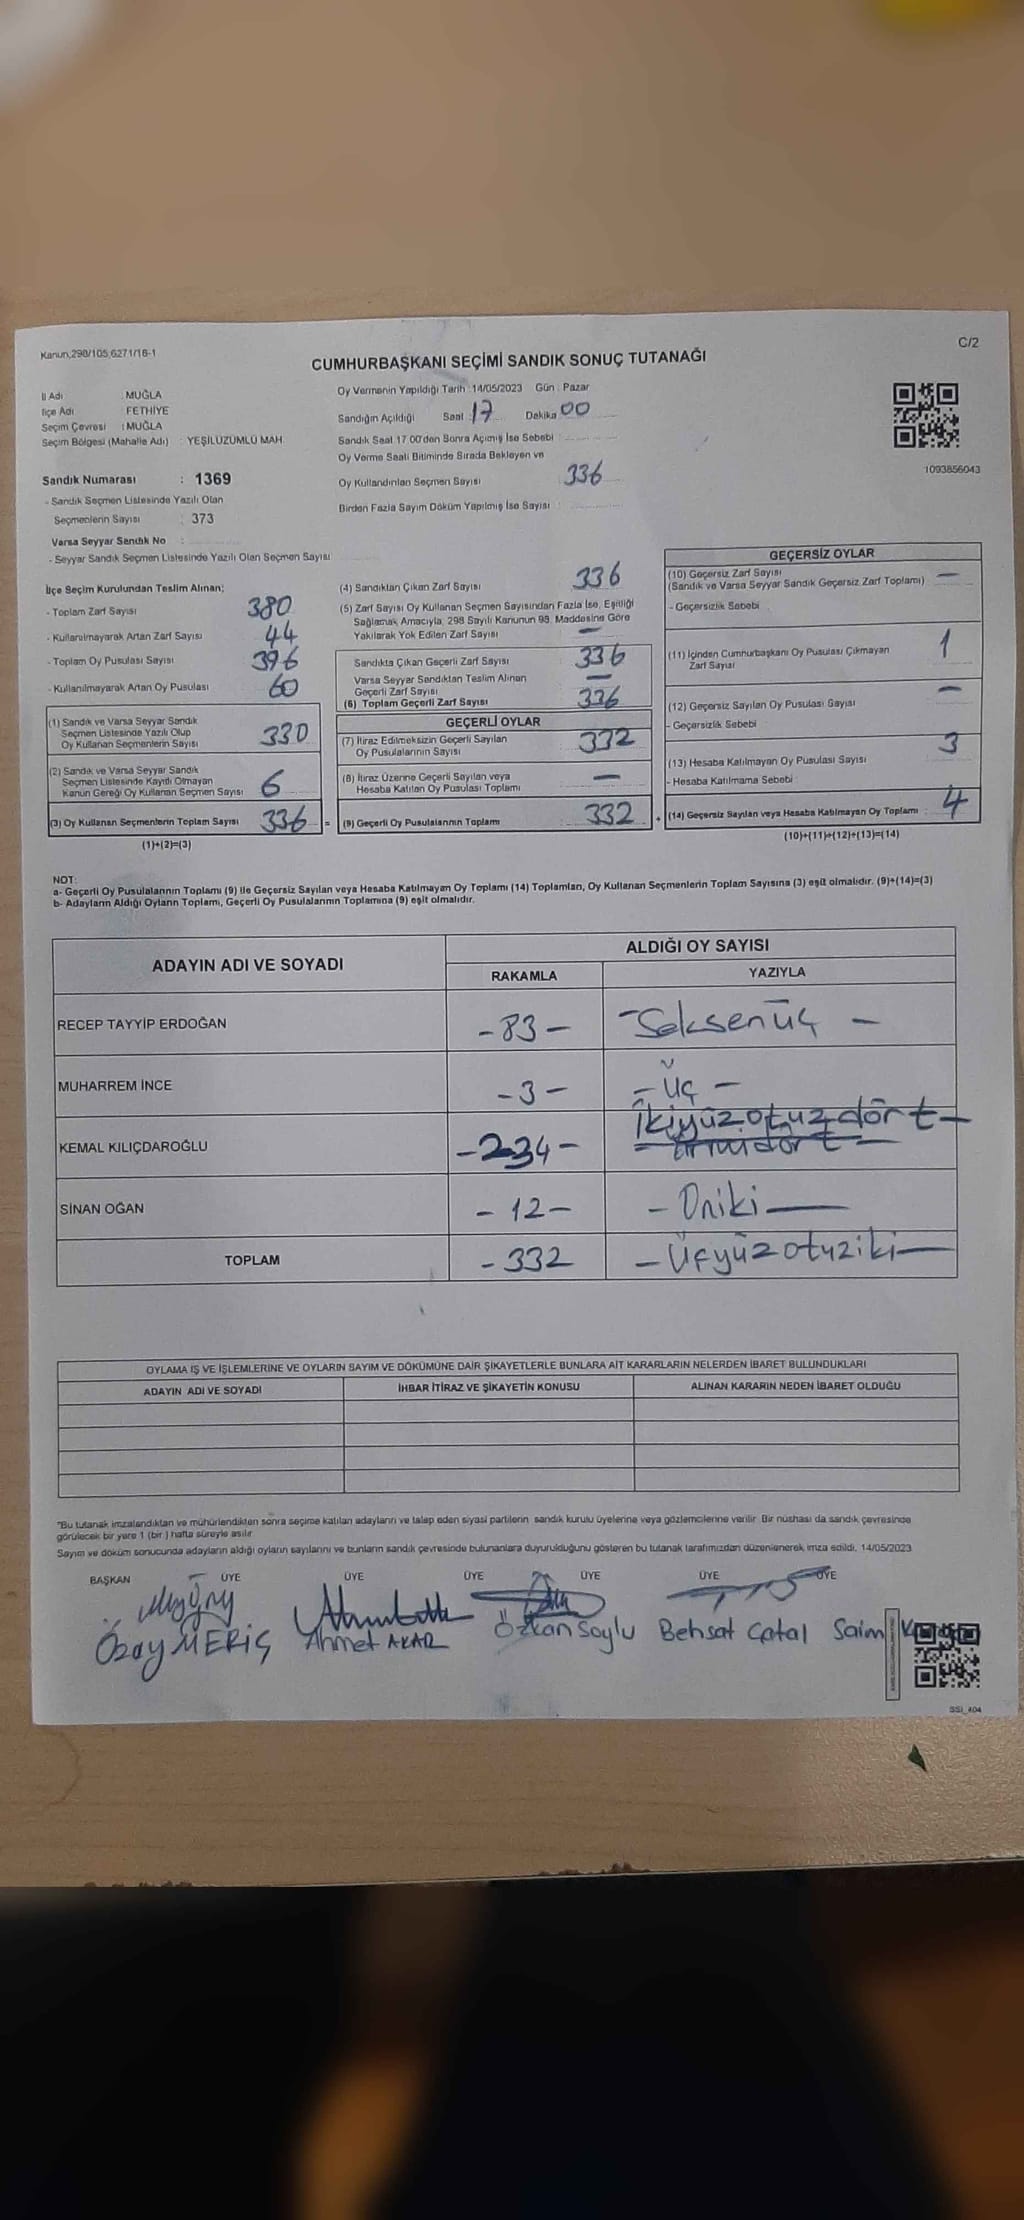 Kanun,298/105,6271/16-1
C/2
CUMHURBAŞKANI SEÇİMİ SANDIK SONUÇ TUTANAĞI
İl Adı : MUĞLA
İlçe Adı : FETHİYE
Seçim Çevresi : MUĞLA
Seçim Bölgesi (Mahalle Adı) : YEŞİLÜZÜMLÜ MAH.
Sandık Numarası : 1369
- Sandık Seçmen Listesinde Yazılı Olan
Seçmenlerin Sayısı : 373
Varsa Seyyar Sandık No :
- Seyyar Sandık Seçmen Listesinde Yazılı Olan Seçmen Sayısı
Oy Vermenin Yapıldığı Tarih : 14/05/2023 Gün : Pazar
Sandığın Açıldığı Saat : 17 Dakika : 00
Sandık Saat 17.00'den Sonra Açımış İse Sebebi :
Oy Verme Saati Bitiminde Sırada Bekleyen ve
Oy Kullandırılan Seçmen Sayısı : 336
Birden Fazla Sayım Döküm Yapılmış İse Sayısı :
1093856043
İlçe Seçim Kurulundan Teslim Alınan;
- Toplam Zarf Sayısı 380
- Kullanılmayarak Artan Zarf Sayısı 44
- Toplam Oy Pusulası Sayısı 396
- Kullanılmayarak Artan Oy Pusulası 60
(1) Sandık ve Varsa Seyyar Sandık
Seçmen Listesinde Yazılı Olup
Oy Kullanan Seçmenlerin Sayısı 330
(2) Sandık ve Varsa Seyyar Sandık
Seçmen Listesinde Kayıtlı Olmayan
Kanun Gereği Oy Kullanan Seçmen Sayısı 6
(3) Oy Kullanan Seçmenlerin Toplam Sayısı 336 =
(1)+(2)=(3)
(4) Sandıktan Çıkan Zarf Sayısı 336
(5) Zarf Sayısı Oy Kullanan Seçmen Sayısından Fazla İse, Eşitliği
Sağlamak Amacıyla, 298 Sayılı Kanunun 98. Maddesine Göre
Yakılarak Yok Edilen Zarf Sayısı —
Sandıkta Çıkan Geçerli Zarf Sayısı 336
Varsa Seyyar Sandıktan Teslim Alınan
Geçerli Zarf Sayısı —
(6) Toplam Geçerli Zarf Sayısı 336
GEÇERLİ OYLAR
(7) İtiraz Edilmeksizin Geçerli Sayılan
Oy Pusulalarının Sayısı 332
(8) İtiraz Üzerine Geçerli Sayılan veya
Hesaba Katılan Oy Pusulası Toplamı —
(9) Geçerli Oy Pusulalarının Toplamı : 332 +
GEÇERSİZ OYLAR
(10) Geçersiz Zarf Sayısı —
(Sandık ve Varsa Seyyar Sandık Geçersiz Zarf Toplamı)
- Geçersizlik Sebebi
(11) İçinden Cumhurbaşkanı Oy Pusulası Çıkmayan
Zarf Sayısı 1
(12) Geçersiz Sayılan Oy Pusulası Sayısı —
- Geçersizlik Sebebi :
(13) Hesaba Katılmayan Oy Pusulası Sayısı 3
- Hesaba Katılmama Sebebi :
(14) Geçersiz Sayılan veya Hesaba Katılmayan Oy Toplamı : 4
(10)+(11)+(12)+(13)=(14)
NOT:
a- Geçerli Oy Pusulalarının Toplamı (9) ile Geçersiz Sayılan veya Hesaba Katılmayan Oy Toplamı (14) Toplamları, Oy Kullanan Seçmenlerin Toplam Sayısına (3) eşit olmalıdır. (9)+(14)=(3)
b- Adayların Aldığı Oyların Toplamı, Geçerli Oy Pusulalarının Toplamına (9) eşit olmalıdır.
ADAYIN ADI VE SOYADI
ALDIĞI OY SAYISI
RAKAMLA YAZIYLA
RECEP TAYYİP ERDOĞAN -83- -Seksenüç-
MUHARREM İNCE -3- -Üç-
İkiyüzotuzdört-
KEMAL KILIÇDAROĞLU -234-
SİNAN OĞAN -12- -Oniki-
TOPLAM -332 -Üçyüzotuziki-
OYLAMA İŞ VE İŞLEMLERİNE VE OYLARIN SAYIM VE DÖKÜMÜNE DAİR ŞİKAYETLERLE BUNLARA AİT KARARLARIN NELERDEN İBARET BULUNDUKLARI
ADAYIN ADI VE SOYADI İHBAR İTİRAZ VE ŞİKAYETİN KONUSU ALINAN KARARIN NEDEN İBARET OLDUĞU
"Bu tutanak imzalandıktan ve mühürlendikten sonra seçime katılan adayların ve talep eden siyasi partilerin sandık kurulu üyelerine veya gözlemcilerine verilir. Bir nüshası da sandık çevresinde
görülecek bir yere 1 (bir) hafta süreyle asılır
Sayım ve döküm sonucunda adayların aldığı oyların sayılarını ve bunların sandık çevresinde bulunanlara duyurulduğunu gösteren bu tutanak tarafımızdan düzenlenerek imza edildi. 14/05/2023
BAŞKAN ÜYE ÜYE ÜYE ÜYE ÜYE ÜYE
Özay MERİÇ Ahmet AKAR Özkan Soylu Behsat Çatal Saim
SSI_404